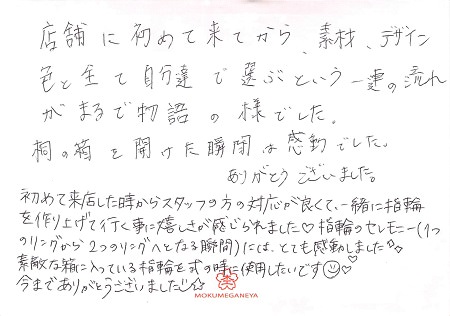 店舗に初めて来てから、素材、デザイン
色と全て自分達で選ぶという一連の流れ
がまるで物語の様でした。
桐の箱を開けた瞬間は感動でした。
ありがとうございました。
初めて来店した時からスタッフの方の対応が良くて、一緒に指輪
を作り上げて行く事に嬉しさが感じられました♡ 指輪のセレモニー(1つ
のリングから2つのリングへとなる瞬間)には、とても感動しました
素敵な箱に入っている指輪を式の時に使用したいです☺♡♡
今までありがとうございました☆
MOKUMEGANEYA